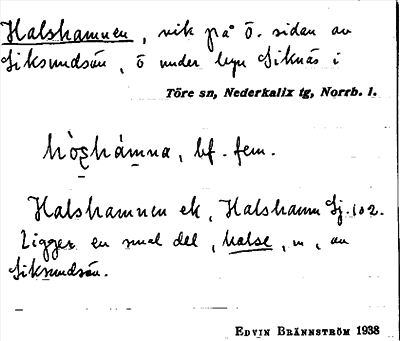 Halshamnen, vik på ö. sidan av
Siksundsön, ö under byn Siknäs i
Töre sn, Nederkalix tg, Norrb. l.
hò̱s̱hám̱na, bf. fem.
Halshamnen ek, Halshamn Sj. 102.
Ligger en smal del, halse, m, av
Siksundsön.
EDVIN BRÄNNSTRÖM 1938